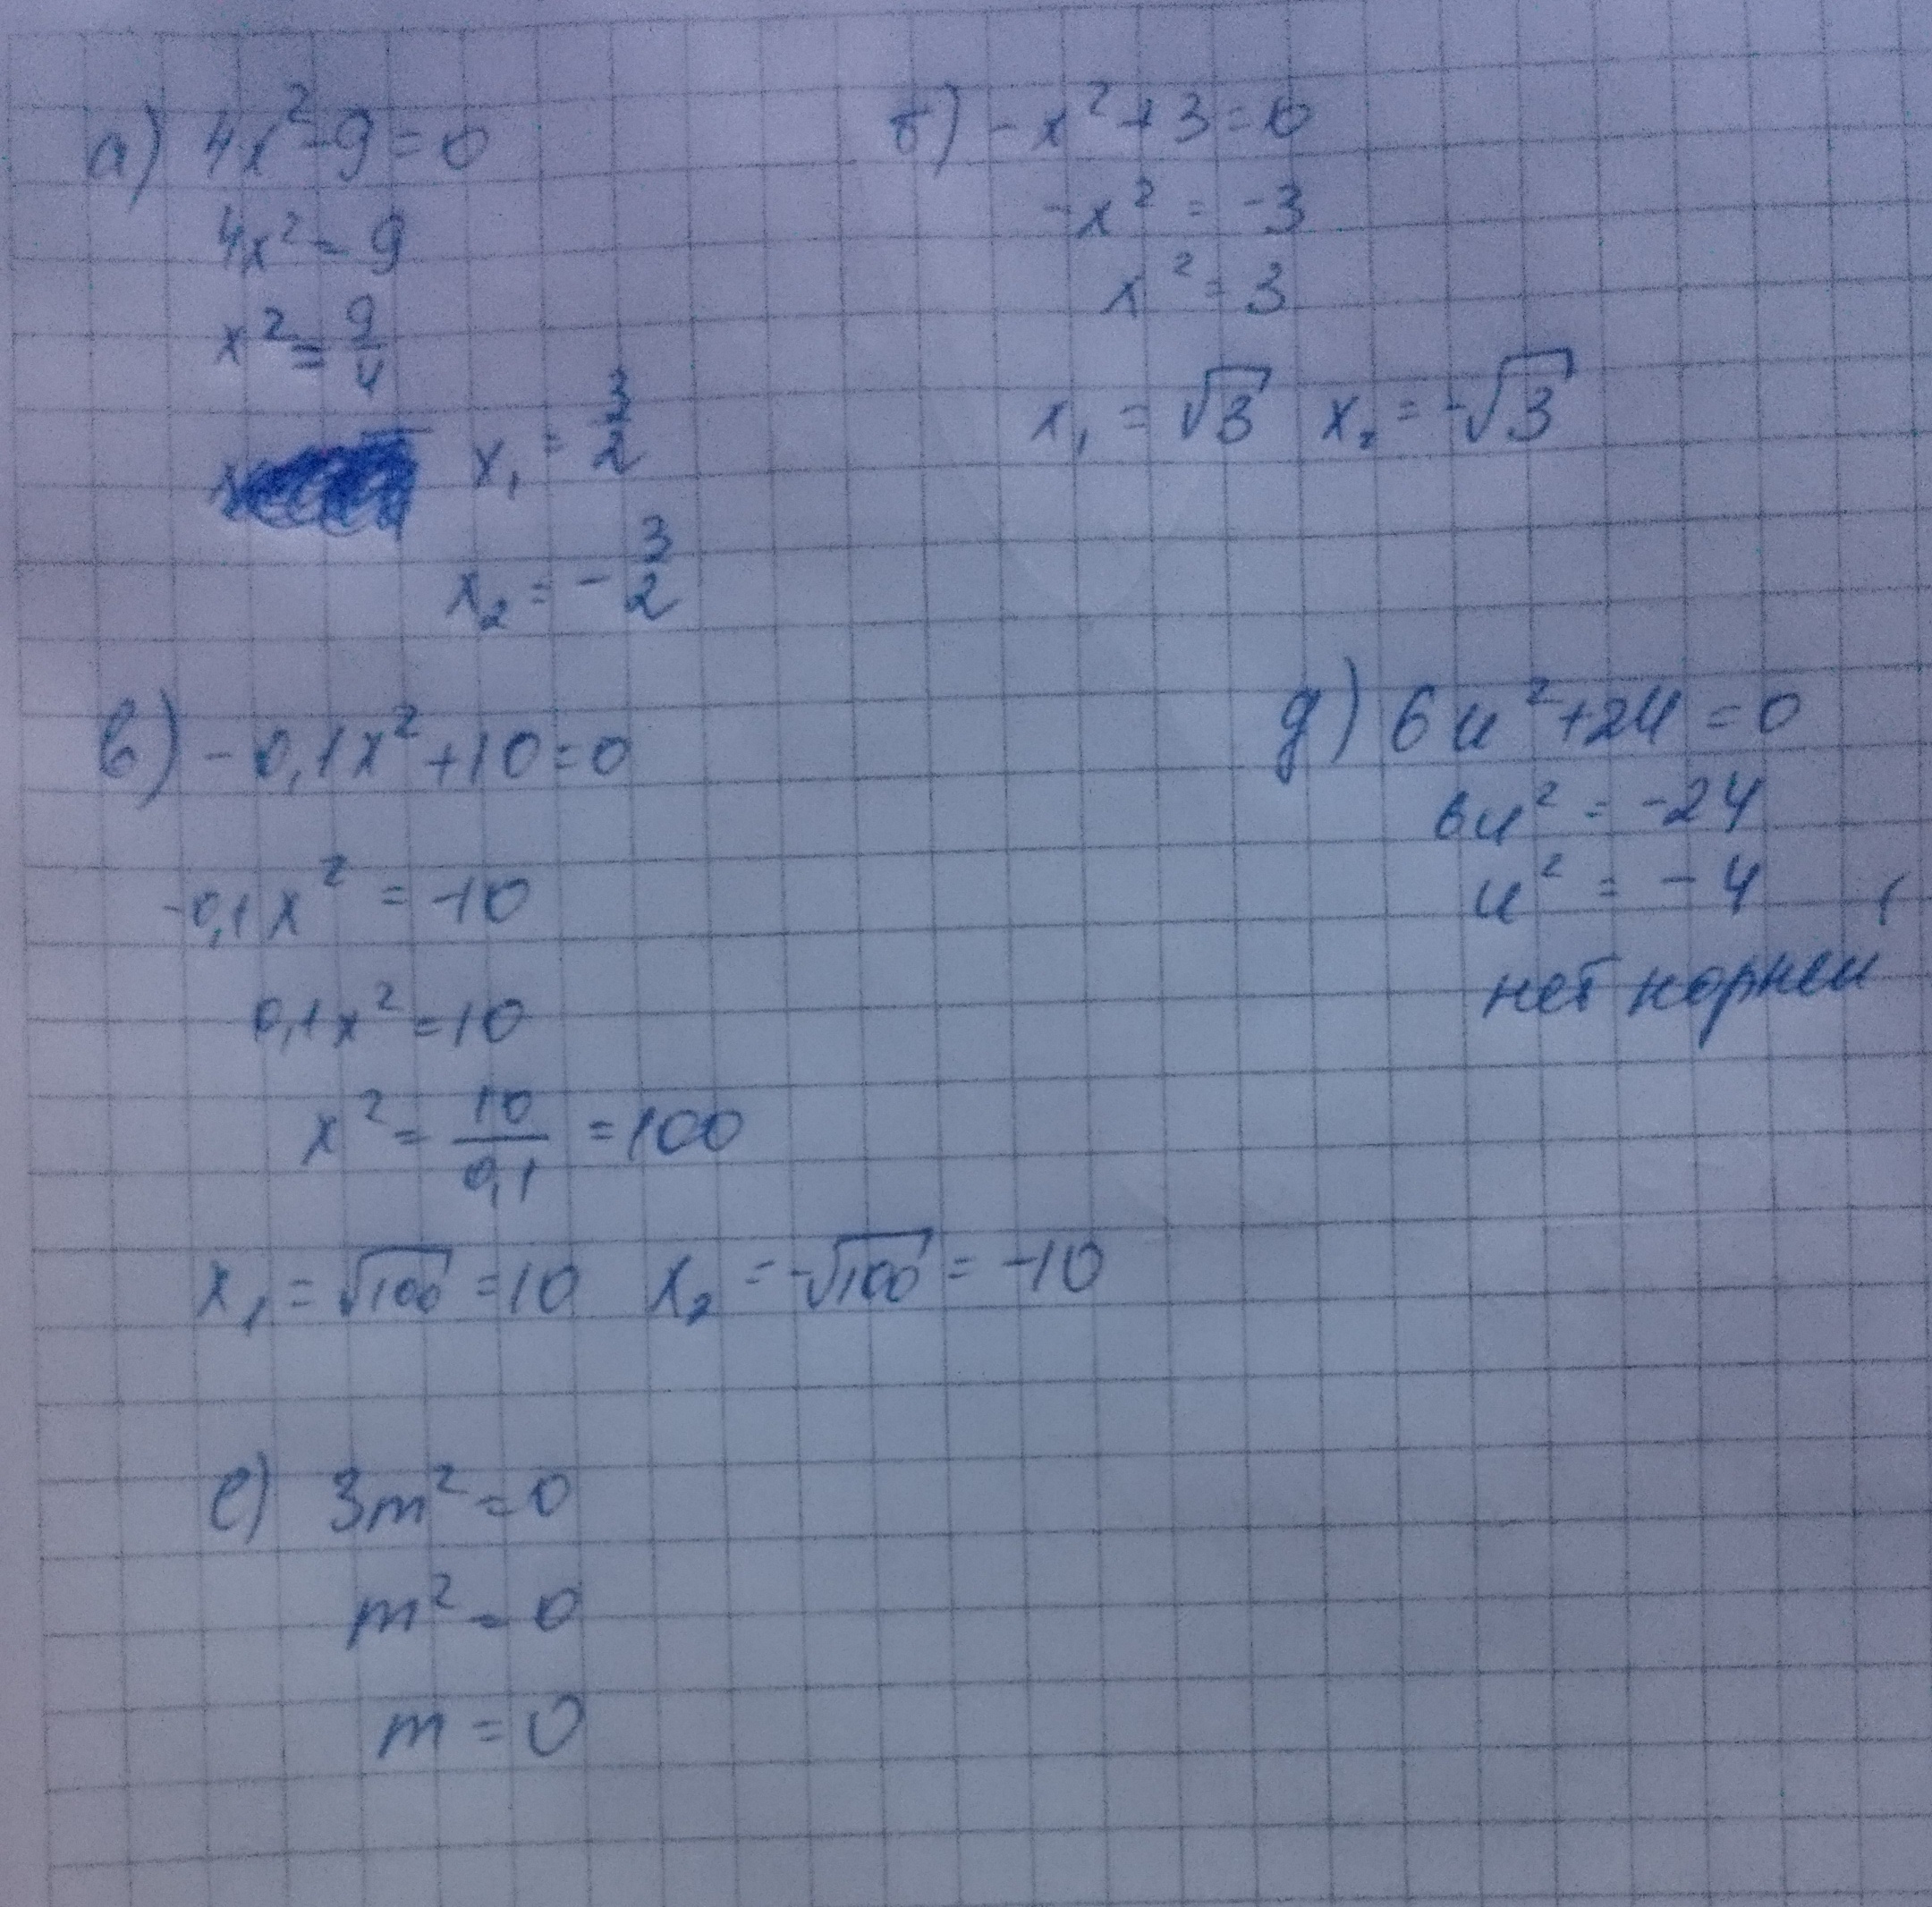 а) 4x² - 9 = 0
4x² = 9
x² = 9/4
x₁ = 3/2
x₂ = - 3/2
б) - x² + 3 = 0
-x² = -3
x² = 3
x₁ = √3 x₂ = -√3
в) - 0,1x² + 10 = 0
-0,1x² = -10
0,1x² = 10
x² = 10/0,1 = 100
x₁ = √100 = 10 x₂ = -√100 = -10
д) 6u² + 24 = 0
6u² = -24
u² = - 4
нет корней
е) 3m² = 0
m² = 0
m = 0